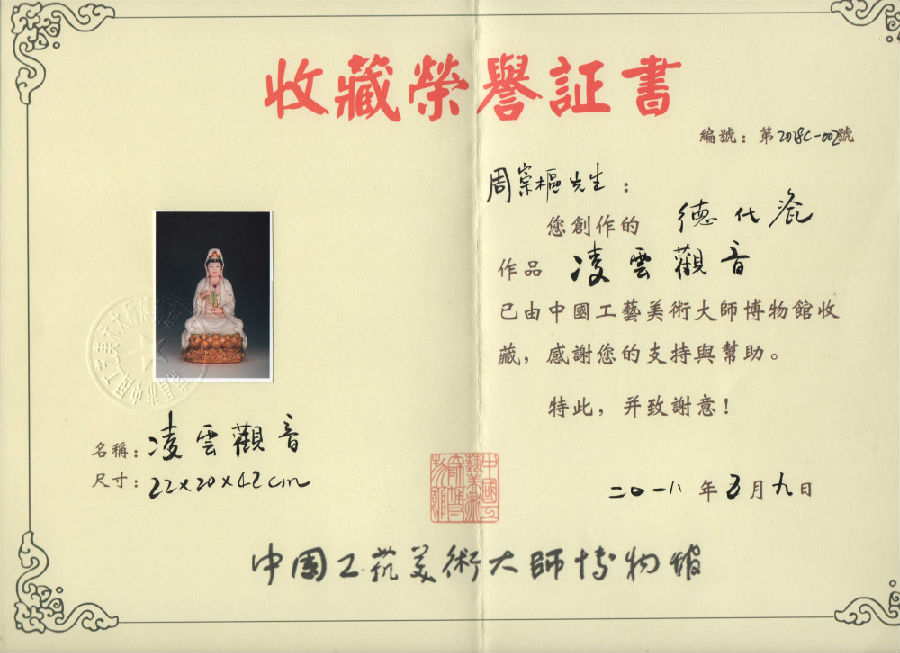 收藏榮譽証書
編號：第2018C-002號
周崇樞先生：
您創作的 德化瓷
作品 凌雲觀音
已由中國工藝美術大師博物館收
藏，感謝您的支持與幫助。
特此，并致謝意！
名稱：凌雲觀音
尺寸：22x20x42cm
二〇一八年3月九日
中国工芸美術大師博物館